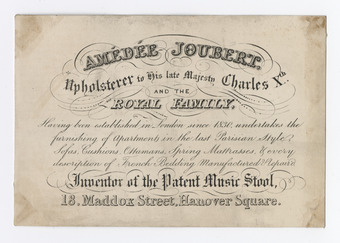 AMÉDÉE JOUBERT,
Upholsterer to His late Majesty Charles Xth
AND THE
ROYAL FAMILY,
Having been established in London since 1830, undertakes the
furnishing of Apartments in the best Parisian Style;
Sofas, Cushions, Ottomans, Spring Mattrasses, & every
description of French Bedding Manufactured & Repaired.
Inventor of the Patent Music Stool,
18, Maddox Street, Hanover Square.